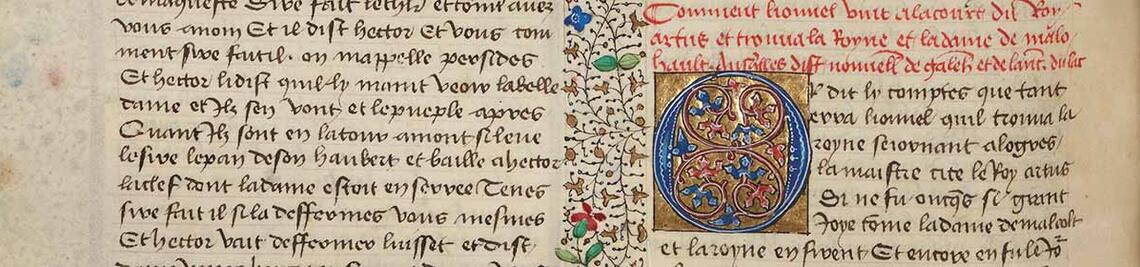 vous a nom Et il dist hector Et vous com
ment sire fait il. on mappelle persides
Et hector lidist quil ly maint veoir la belle
dame et ilz sen vont et le pueple apres
Quant ilz sont en la tour amont si leve
le sire le pan de son haubert et baille a hector
la clef dont la dame estoit enserree Tenes
sire fait il si la deffermes vous mesmes
Et hector vait deffermer luisset et dist
Comment lionnel vint a la court du Roy
artus et trouva la Royne et la dame de malo
hault. Ausquelles dist nouvell de galeh et de lanc. du lac
Or dit ly comptes que tant
erra lionnel quil trouva la
royne seiornant a logres
la maistre cite le Roy artus
Si ne fu oncqs si grant
Joye come la dame de malolt
et la royne en firent Et encore en fu le